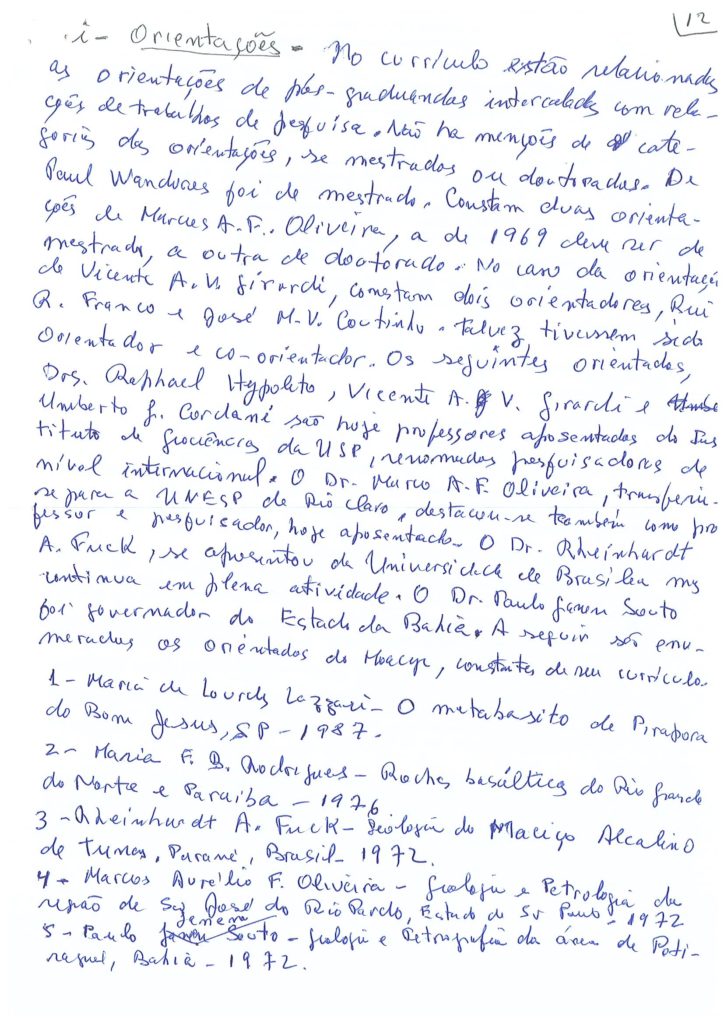 12
i - Orientações - No currículo estão relacionadas
as orientações de pós-graduandas intercaladas com rela-
ções de trabalhos de pesquisa. Não ha menções de cate-
gorias das orientações, se mestrados ou doutorados. De
Paul Wandvaes foi de mestrado. Constam duas orienta-
ções de Marcus A.F. Oliveira, a de 1969 deve ser de
mestrado, a outra de doctorado. No caso da orientaçã
de Vicente A.V. Girardi, constam dois orientadores, Rui
R. Franco e José M.V. Coutinho. Talvez, tivessem sido
orientador e co-orientador. Os seguintes orientados,
Drs. Raphael Hypolito, Vicente A. V. Girardi e
Umberto G. Cordani são hoje professores aposentados do Ins
tituto de Geociências da USP, renomados pesquisadores de
nível internacional. O Dr. Marco A.F. Oliveira, transferiu-
se para a UNESP de Rio Claro, destacou-se também como pro
fessor e pesquisador, hoje aposentado. O Dr. Rheinhardt
A. Fuck, se aposentou da Universidade de Brasilea mas
continua em plena atividade. O Dr. Paulo Ganem Souto
foi governador do Estado da Bahia. A seguir são enu-
merados os orientados do Moacyr, constantes de seu currículo.
1 - Maria de Lourdes Lazzari - O metabasito de Pirapora
do Bom Jesus, SP - 1987.
2 - Maria F. B. Rodrigues - Rochas basálticas do Rio Grande
do Norte e Paraiba - 1976
3 - Rheinhardt A. Fuck - Geologia do Maciço Alcalino
de Tunas, Paraná, Brasil - 1972.
4 - Marcos Aurélio F. Oliveira - Geologia e Petrologia da
região de São José do Rio Pardo, Estado de S. Paulo - 1972
5 - Paulo Ganem Souto - Geologia e Petrografia da área de Poti-
raguá, Bahia - 1972.